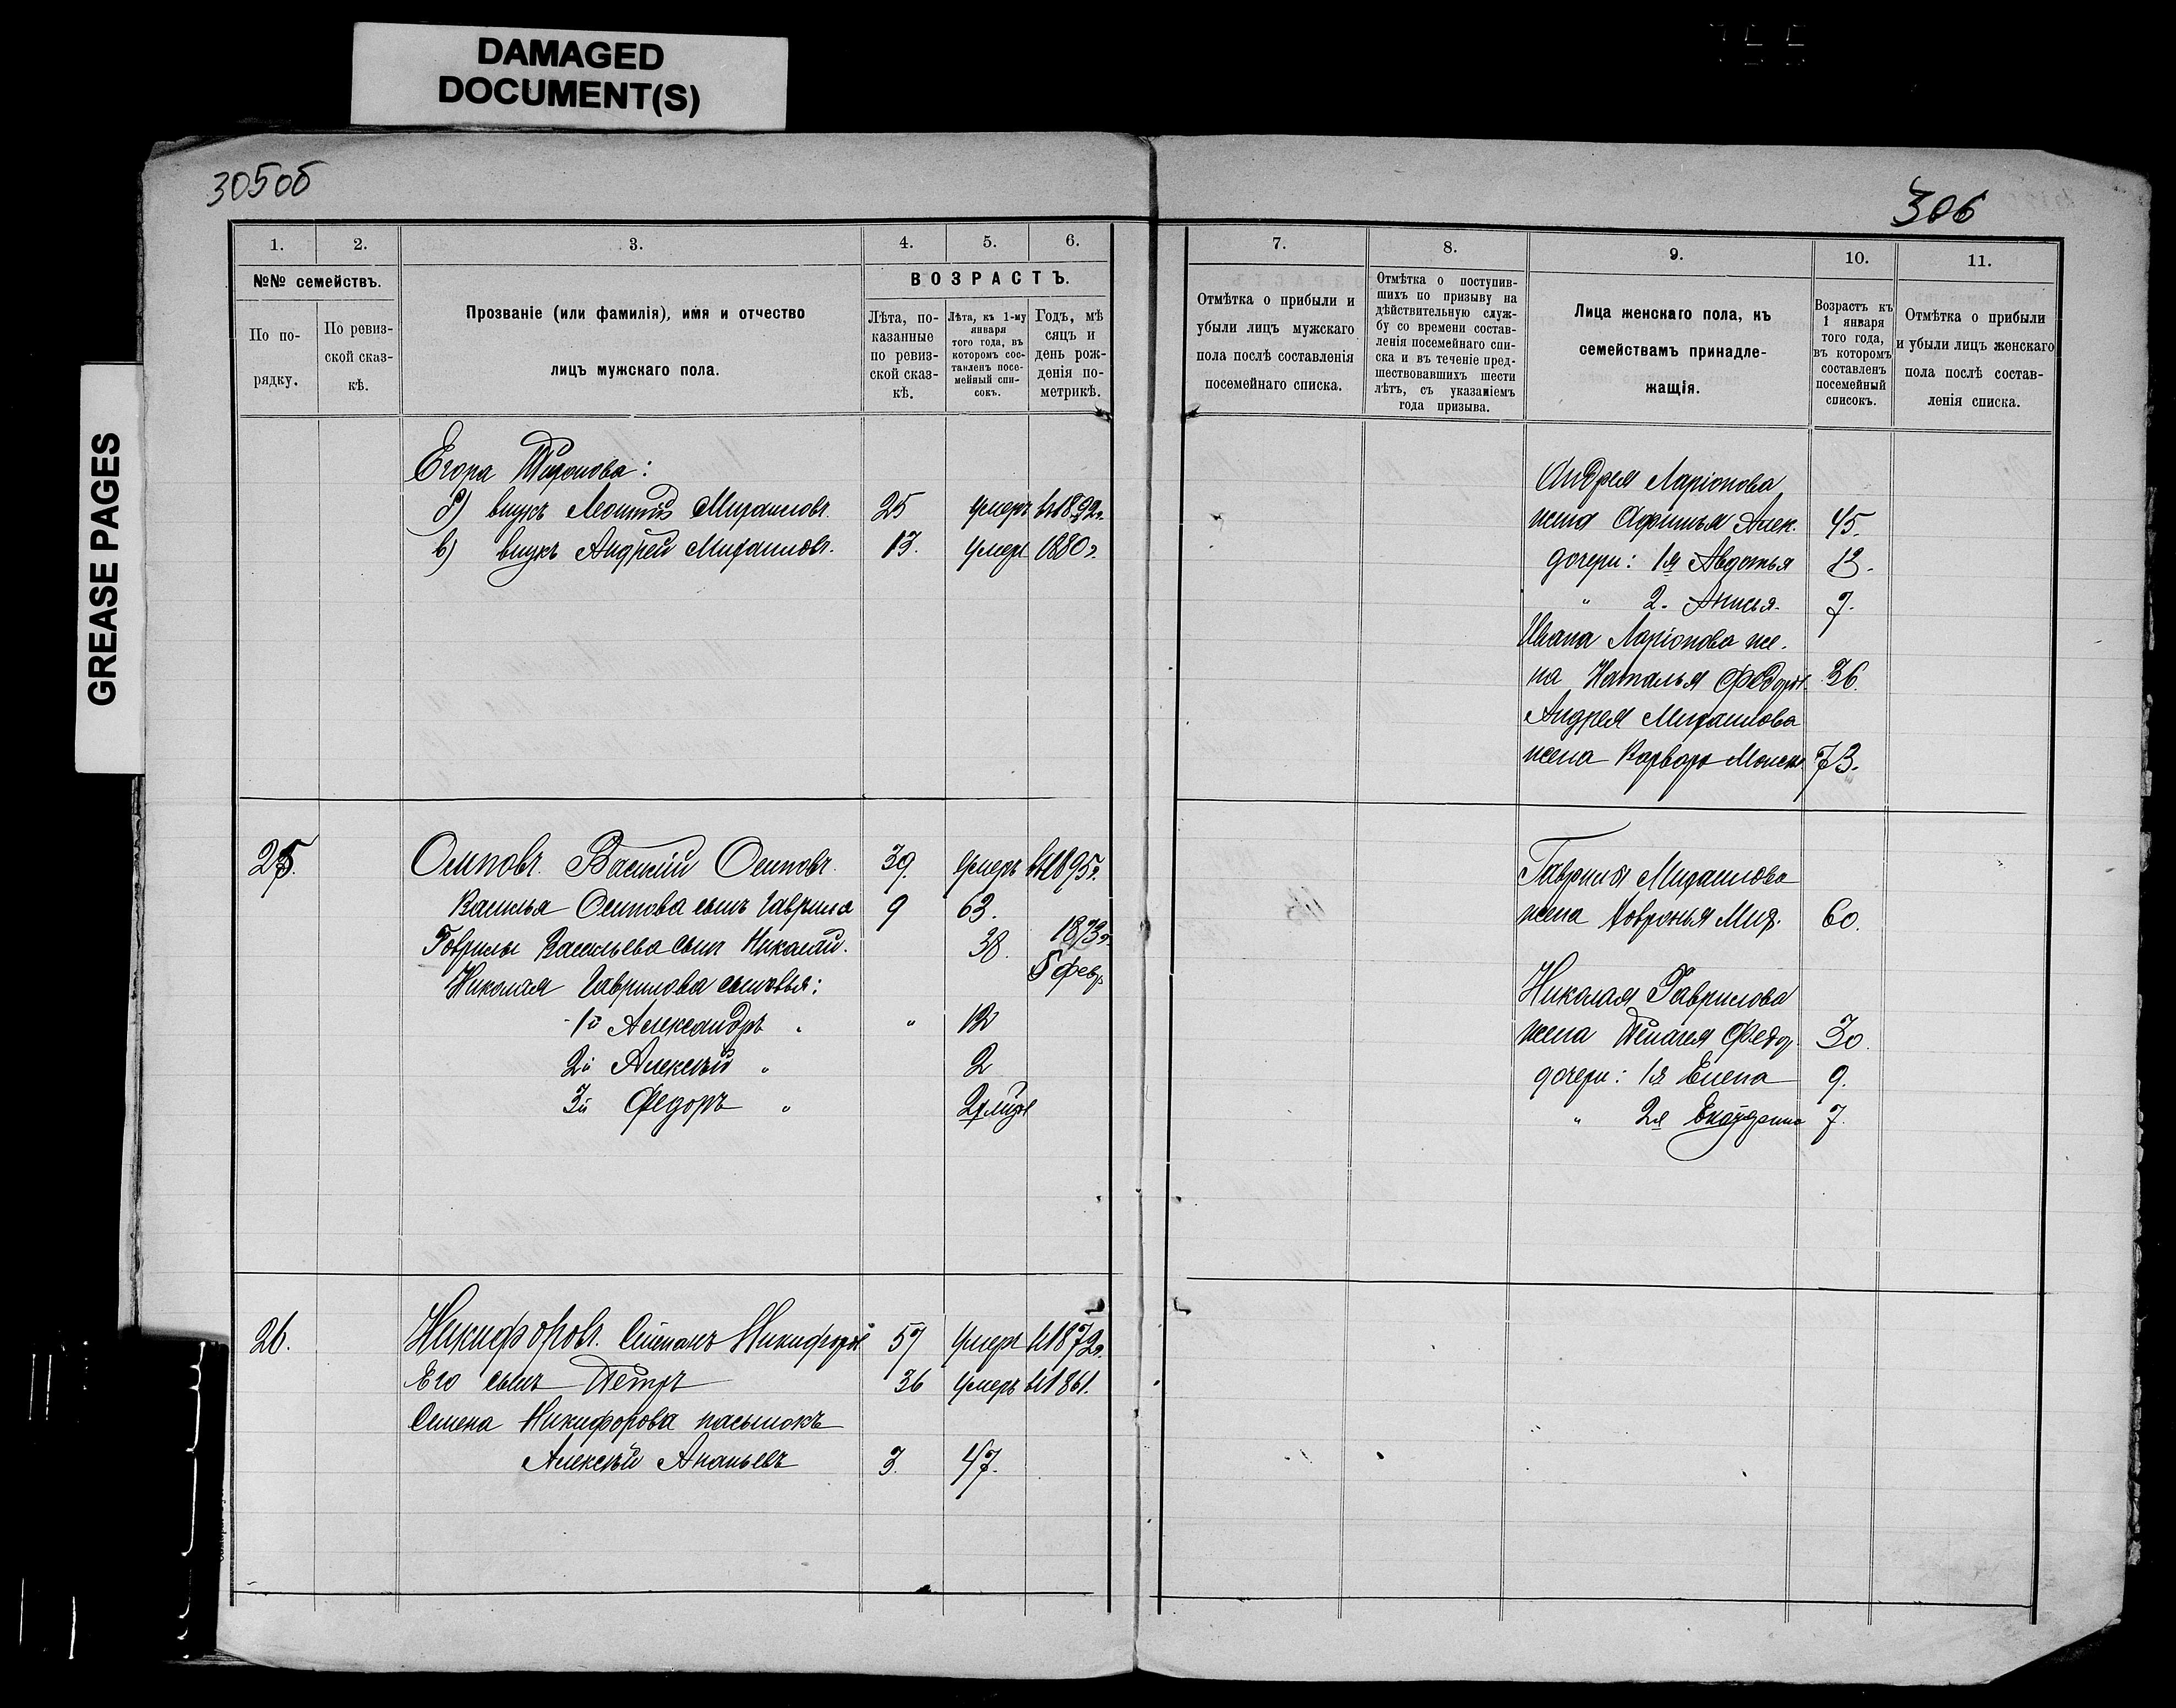 DAMAGED
DOCUMENT(S)
GREASE PAGES
305об
306
1.
2.
3.
4.
5.
6.
№№ семействъ.
По по-
рядку.
По ревиз-
ской сказ-
кѣ.
Прозваніе (или фамилія), имя и отчество
лицъ мужскаго пола.
ВОЗРАСТЪ.
Лѣта, по-
казанные
по ревиз-
ской сказ-
кѣ.
Лѣта, къ 1-му
января
того года, въ
которомъ сос-
тавленъ посе-
мейный спи-
сокъ.
Годъ, мѣ
сяцъ и
день рож-
денія по-
метрикѣ.
Егора
внукъ Леонтій Михаиловъ. 25 умеръ въ 1892г.
в) внукъ Андрей Михаиловъ. 13. умеръ 1880г.
25. Осиповъ. Василій Осиповъ. 39. умеръ въ 1895г.
Василья Осипова сынъ Гаврила 9 63.
Гаврилы Васильева сынъ Николай. 38. 1873г.
5 февр
Николая Гаврилова сыновья:
1й Александръ " " 12
2й Алексѣй " 2
3й Федоръ "
26. Никифоровъ. Никифоръ 57 умеръ въ 1872г.
Его сынъ Петръ 36 умеръ въ 1861.
Семена Никифорова пасынокъ
Алексѣй Ананьевъ 3. 47.
7.
8.
9.
10.
11.
Отмѣтка о прибыли и
убыли лицъ мужскаго
пола послѣ составленія
посемейнаго списка.
Отмѣтка о поступив-
шихъ по призыву на
дѣйствительную служ-
бу со времени состав-
ленія посемейнаго спи-
ска и въ теченіе пред-
шествовавшихъ шести
лѣтъ, съ указаніемъ
года призыва.
Лица женскаго пола, къ
семействамъ принадле-
жащія.
Возрастъ къ
1 января
того года,
въ которомъ
составленъ
посемейный
списокъ.
Отмѣтка о прибыли
и убыли лицъ женскаго
пола послѣ состав-
ленія списка.
Андрея Ларіонова
жена Афимья Алек. 45.
дочери: 1я Авдотья
" 2. Анисья. 7.
Ивана Ларіонова же-
на Наталья Федоров. 36.
Андрея Михаилова
жена Варвара 73.
Гаврила Михаилова
жена Ховронья Мих. 60.
Николая Гаврилова
жена Пелагея Федор. 30.
дочери: 1я Елена 9.
" 2я Екатерина 7.